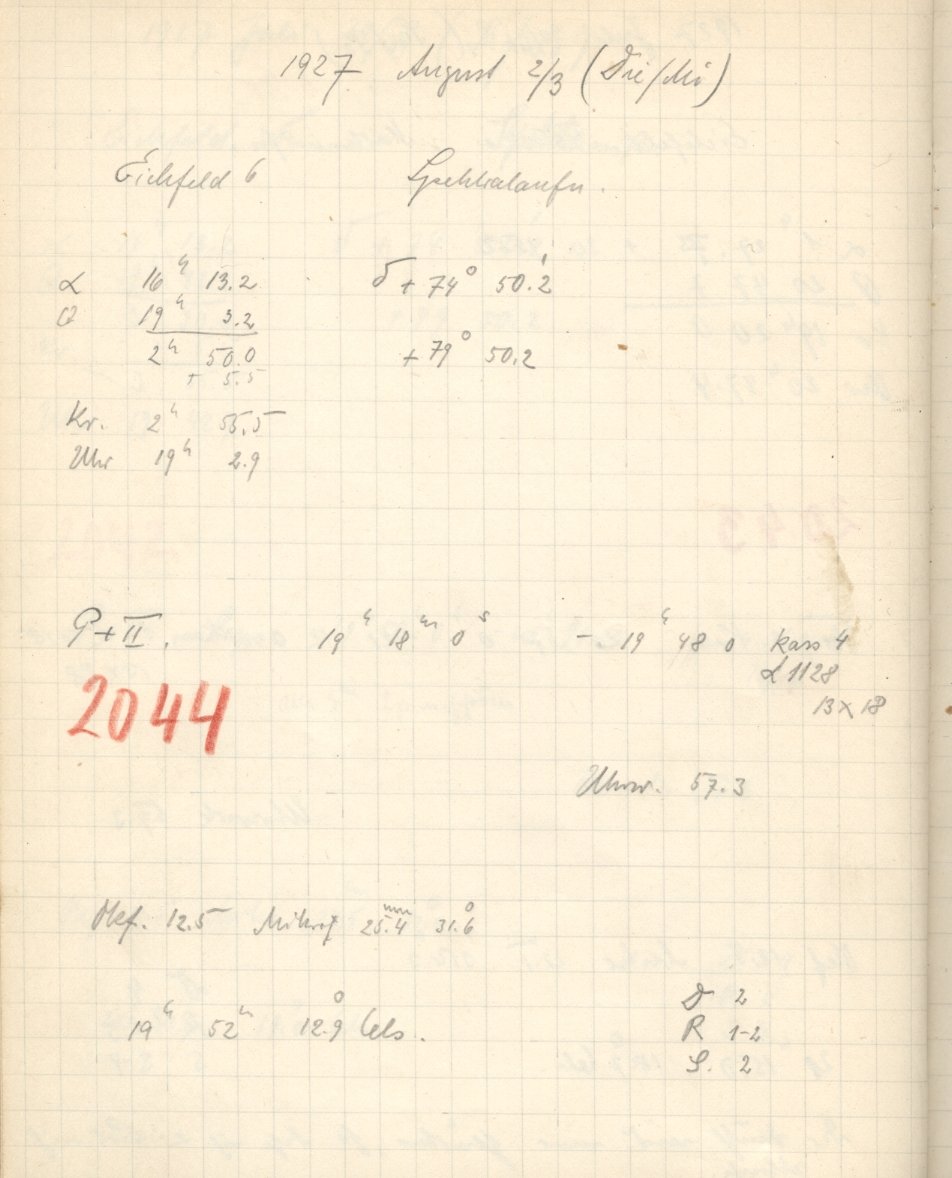 1927 August 2/3 (Die/Mi)
Eichfeld 6 Spektralaufn.
α 16ʰ 13.2 δ + 74° 50.'2
Θ 19ʰ 3.2
2ʰ 50.0 + 79° 50.2
+ 5.5
Kr. 2ʰ 55.5
Uhr 19ʰ 2.9
P+II. 19ʰ 18ᵐ 0ˢ – 19ʰ 48 0 Kass 4
α 1128
13 x 18
2044
Uhrw. 57.3
Okf. 12.5 25.4ᵐᵐ 31.6°
19ʰ 52ʰ 12.9° Cels.
D 2
R 1-2
S. 2